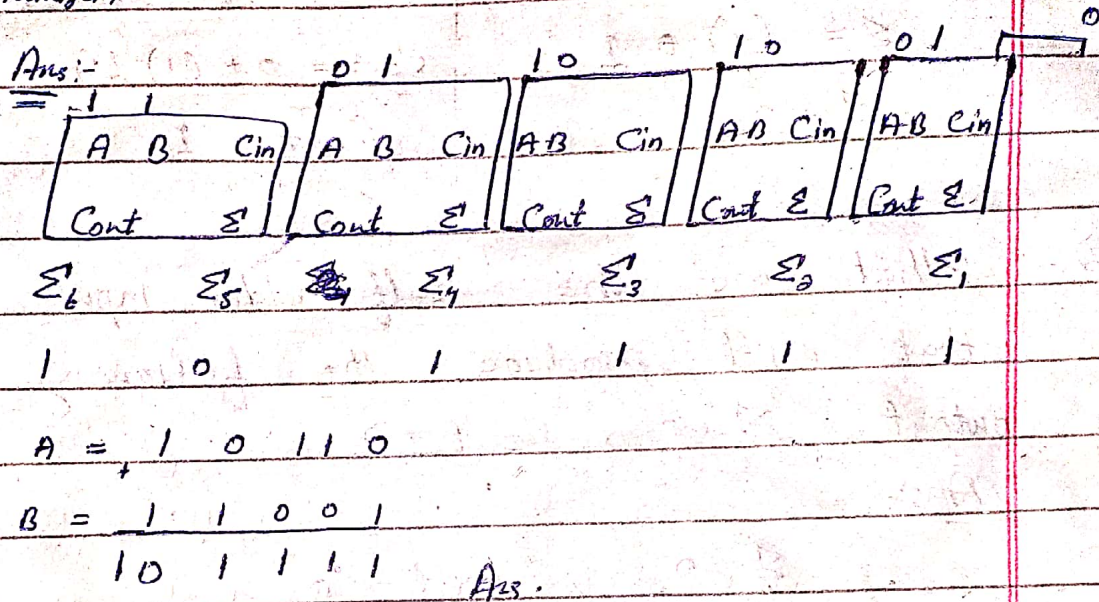 0
Ans:-
1 1 0 1 1 0 1 0 0 1
A B Cin A B Cin A B Cin A B Cin A B Cin
Cout Σ Cout Σ Cout Σ Cout Σ Cout Σ
Σ6 Σ5 Σ4 Σ3 Σ2 Σ1
1 0 1 1 1 1
A = 1 0 1 1 0
+
B = 1 1 0 0 1
1 0 1 1 1 1 Ans.